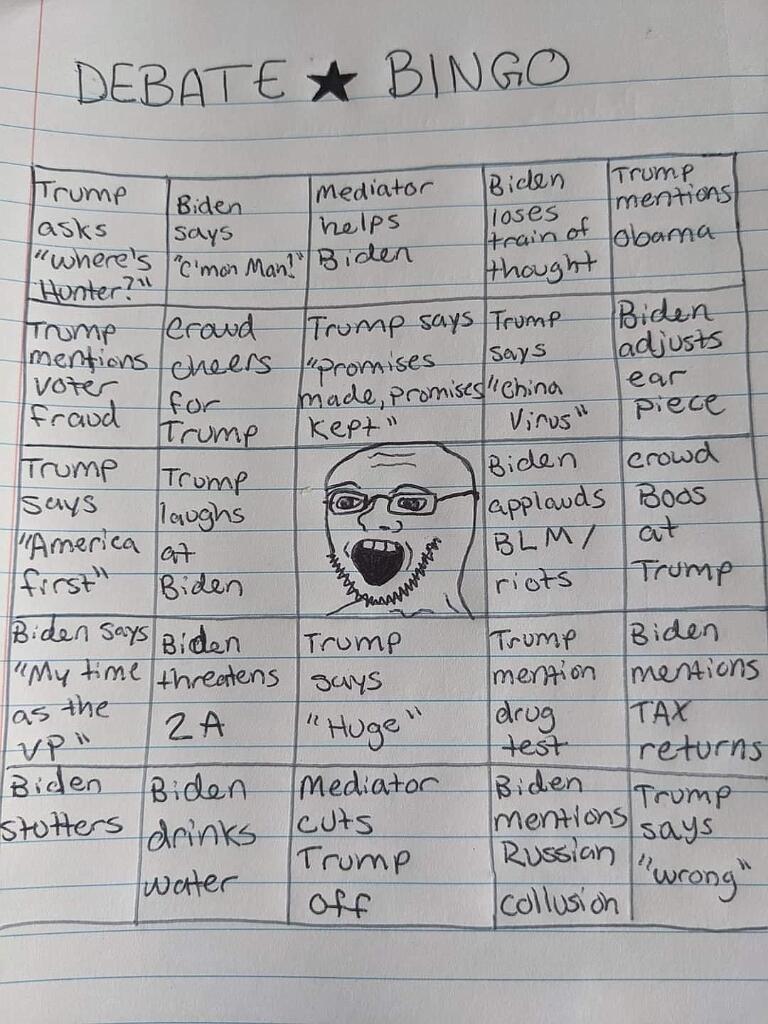 DEBATE ★ BINGO
Trump
asks
"where's
Hunter?"
Biden
says
"C'mon Man!"
Mediator
helps
Biden
Biden
loses
train of
thought
Trump
mentions
Obama
Trump
mentions
voter
fraud
crowd
cheers
for
Trump
Trump says
"promises
made, promises
kept"
Trump
says
"China
Virus"
Biden
adjusts
ear
piece
Trump
says
"America
first"
Trump
laughs
at
Biden
Biden
applauds
BLM/
riots
crowd
Boos
at
Trump
Biden says
"My time
as the
VP"
Biden
threatens
2A
Trump
says
"Huge"
Trump
mention
drug
test
Biden
mentions
TAX
returns
Biden
stutters
Biden
drinks
water
Mediator
cuts
Trump
off
Biden
mentions
Russian
collusion
Trump
says
"wrong"